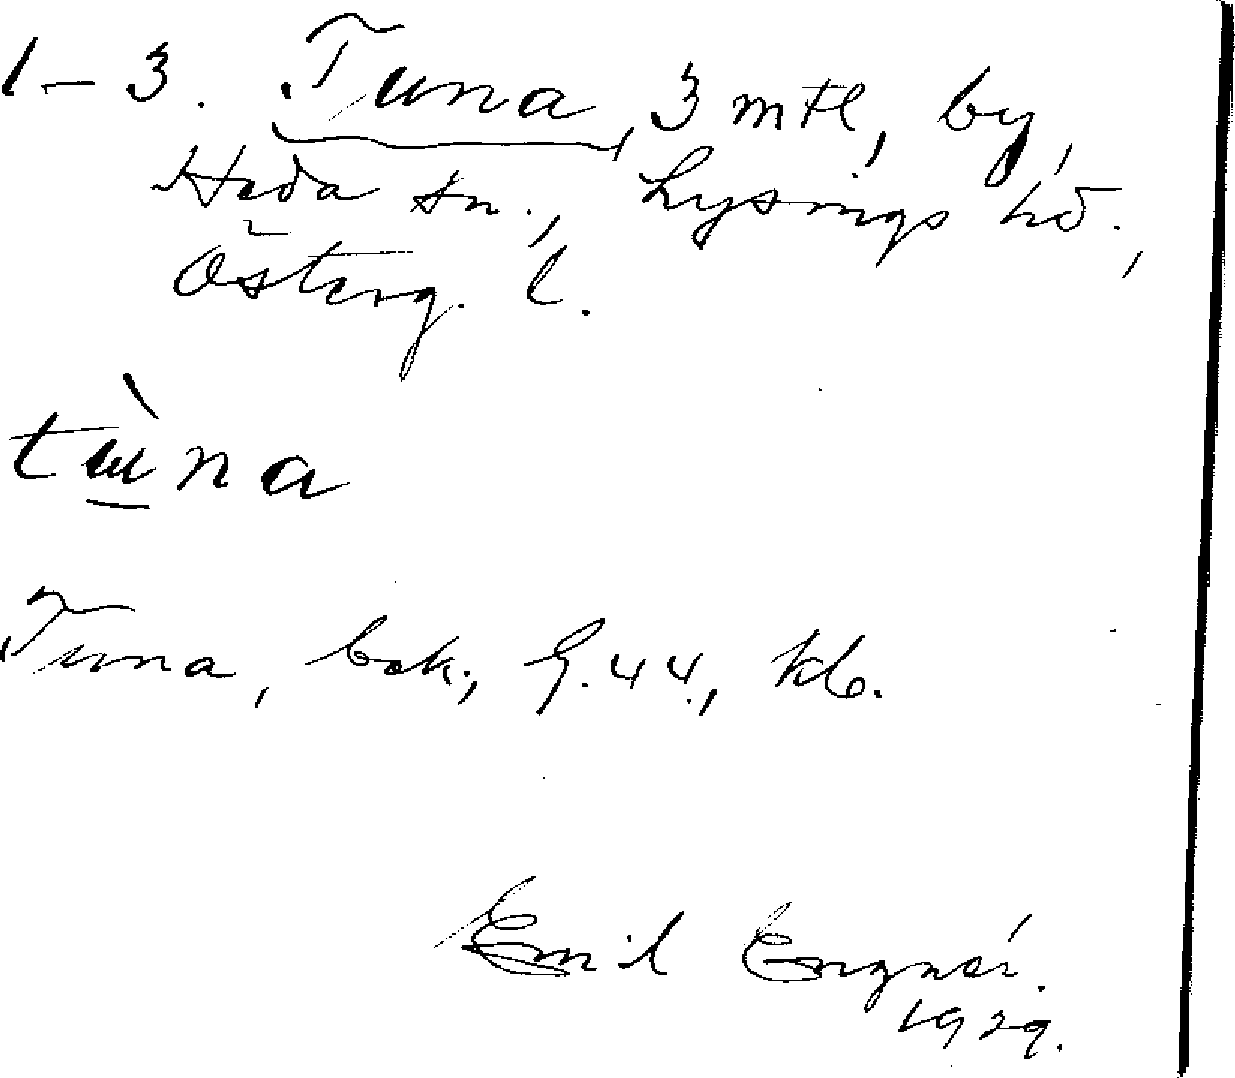 1–3. Tuna, 3 mtl, by,
Heda sn., Lysings hd.,
Österg. l.
tùna
Tuna, bok., G.44., kb.
Emil Engnér.
1929.